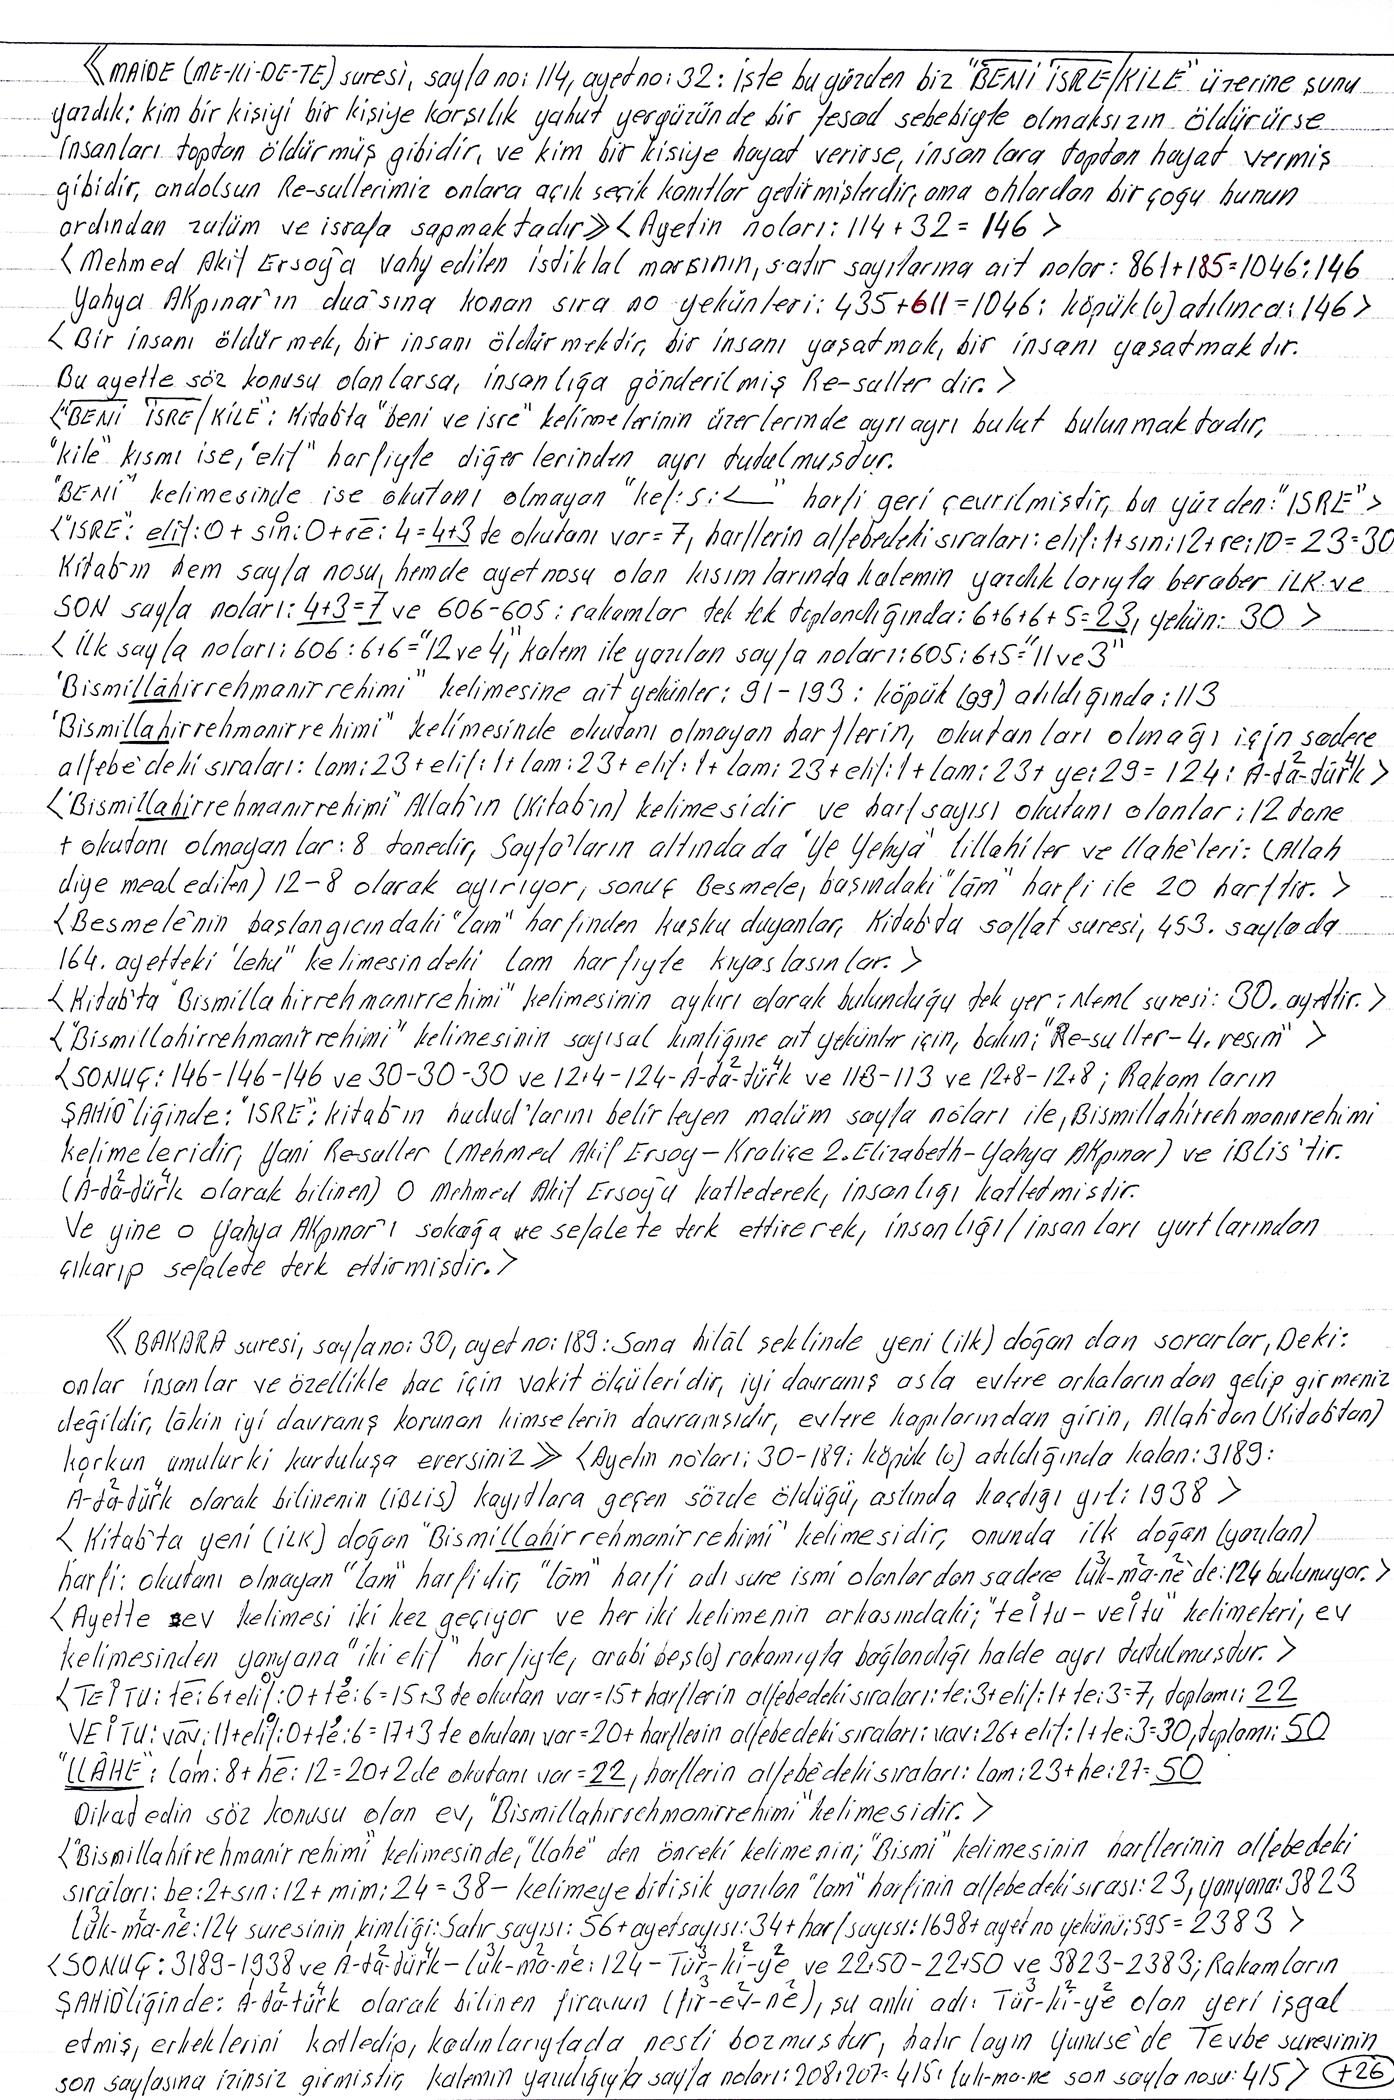 《MAİDE (ME-Kİ-DE-TE) suresi, sayfa no: 114, ayet no: 32: İşte bu yüzden biz "BENİ İSRE/KİLE" üzerine şunu
yazdık: kim bir kişiyi bir kişiye karşılık yahut yeryüzünde bir fesad sebebiyle olmaksızın öldürürse
insanları toptan öldürmüş gibidir, ve kim bir kişiye hayat verirse, insanlara toptan hayat vermiş
gibidir, andolsun Re-sullerimiz onlara açık seçik kanıtlar getirmişlerdir, ama onlardan bir çoğu bunun
ardından zulüm ve israfa sapmaktadır》<Ayetin noları: 114+32=146>
<Mehmed Akif Ersoy'a vahy edilen istiklal marşının, satır sayılarına ait nolar: 861+185=1046:146
Yahya AKpınar'ın dua'sına konan sıra no yekünleri: 435+611=1046: köpük(0) atılınca: 146>
<Bir insanı öldürmek, bir insanı öldürmektir, bir insanı yaşatmak, bir insanı yaşatmaktır.
Bu ayette söz konusu olanlarsa, insanlığa gönderilmiş Re-suller dir.>
<"BENİ İSRE/KİLE": Kitab'ta "beni ve isre" kelimelerinin üzerlerinde ayrı ayrı bulut bulunmaktadır,
"kile" kısmı ise, "elif" harfiyle diğerlerinden ayrı tutulmuşdur.
"BENİ" kelimesinde ise okutanı olmayan "kef: S:<__" harfi geri çevrilmiştir, bu yüzden: "ISRE">
<"ISRE": elif:0+ sin:0+re: 4=4+3 te okutanı var=7, harflerin alfebedeki sıraları: elif:1+sin:12+re:10=23=30
Kitab'ın hem sayfa nosu, hemde ayet nosu olan kısımlarında kalemin yazdıklarıyla beraber İLK ve
SON sayfa noları: 4+3=7 ve 606-605: rakamlar tek tek toplandığında: 6+6+6+5=23, yekün: 30>
<İlk sayfa noları: 606: 6+6="12 ve 4", kalem ile yazılan sayfa noları: 605: 6+5="11 ve 3"
"Bismillâhirrehmanirrehimi" kelimesine ait yekünler: 91-193: köpük (99) atıldığında: 113
"Bismillahirrehmanirrehimi" kelimesinde okutanı olmayan harflerin, okutanları olmağı için sadece
alfebe'deki sıraları: lam:23+elif:1+lam:23+elif:1+lam:23+elif:1+lam:23+ye:29=124: A-ta²-türk⁴>
<"Bismillahirrehmanirrehimi" Allah'ın (Kitab'ın) kelimesidir ve harf sayısı okutanı olanlar: 12 tane
+ okutanı olmayanlar: 8 tanedir, Sayfa'ların altındada "Ye Yehya" lillahiler ve llahe'leri: (Allah
diye meal edilen) 12-8 olarak ayırıyor, sonuç Besmele, başındaki "lâm" harfi ile 20 harftir.>
<Besmele'nin başlangıcındaki "lam" harfinden kuşku duyanlar, Kitab'ta saffat suresi, 453. sayfada
164. ayetteki "lehu" kelimesindeki lam harfiyle kıyaslasınlar.>
<Kitab'ta "Bismillahirrehmanirrehimi" kelimesinin aykırı olarak bulunduğu tek yer: Neml suresi: 30. ayettir.>
<"Bismillahirrehmanirrehimi" kelimesinin sayısal kimliğine ait yekünler için, bakın; "Re-suller-4. resim">
<SONUÇ: 146-146-146 ve 30-30-30 ve 12+4-124-A-ta²-türk⁴ ve 113-113 ve 12+8-12+8; Rakamların
ŞAHİD'liğinde: "ISRE"; kitab'ın hudud'larını belirleyen malüm sayfa noları ile, Bismillahirrehmanirrehimi
kelimeleridir, Yani Re-suller (Mehmed Akif Ersoy-Kraliçe 2.Elizabeth-Yahya AKpınar) ve İBLİS'tir.
(A-ta²-türk⁴ olarak bilinen) O Mehmed Akif Ersoy'u katlederek, insanlığı katletmiştir.
Ve yine o Yahya AKpınar'ı sokağa ve sefalete terk ettirerek, insanlığı/insanları yurtlarından
çıkarıp sefalete terk ettirmiştir.>
《BAKARA suresi, sayfa no: 30, ayet no: 189: Sana hilâl şeklinde yeni (ilk) doğan dan sorarlar, Deki:
onlar insanlar ve özellikle hac için vakit ölçüleridir, iyi davranış asla evlere arkalarından gelip girmeniz
değildir, lâkin iyi davranış korunan kimselerin davranışıdır, evlere kapılarından girin, Allah'dan (Kitab'tan)
korkun umulurki kurtuluşa erersiniz》<Ayetin noları: 30-189: köpük (0) atıldığında kalan: 3189:
A-ta²-türk⁴ olarak bilinenin (İBLİS) kayıtlara geçen sözde öldüğü, aslında kaçtığı yıl: 1938>
<Kitab'ta yeni (İLK) doğan "Bismillahirrehmanirrehimi" kelimesidir, onunda ilk doğan (yazılan)
harfi: okutanı olmayan "lam" harfidir, "lâm" harfi adı sure ismi olanlardan sadece lük³-ma²-ne²'de: 124 bulunuyor.>
<Ayette ev kelimesi iki kez geçiyor ve her iki kelimenin arkasındaki; "teîtu-veîtu" kelimeleri, ev
kelimesinden yanyana "iki elif" harfiyle, arabi beş(o) rakamıyla bağlandığı halde ayrı tutulmuşdur.>
<TEİTU: te:6+elif:0+te:6=15+3 te okutan var=15+ harflerin alfebedeki sıraları: te:3+elif:1+te:3=7, toplamı: 22
VEİTU: vav:11+elif:0+te:6=17+3 te okutanı var=20+ harflerin alfebedeki sıraları: vav:26+elif:1+te:3=30, toplamı: 50
"LLÂHE": lam:8+he:12=20+2 de okutanı var=22, harflerin alfebe'deki sıraları: lam:23+he:27=50
Dikat edin söz konusu olan ev, "Bismillahirrehmanirrehimi" kelimesidir.>
<"Bismillahirrehmanirrehimi" kelimesinde, "llahe" den önceki kelimenin; "Bismi" kelimesinin harflerinin alfebedeki
sıraları: be:2+sin:12+mim:24=38- kelimeye bitişik yazılan "lam" harfinin alfebedeki sırası: 23, yanyana: 3823
lük³-ma²-ne²: 124 suresinin kimliği: Satır sayısı: 56+ayet sayısı: 34+harf sayısı: 1698+ayet no yekünü: 595=2383>
<SONUÇ: 3189-1938 ve A-ta²-türk⁴-lük³-ma²-ne²: 124-Tür³-ki²-ye² ve 22+50-22+50 ve 3823-2383; Rakamların
ŞAHİD'liğinde: A-ta²-türk⁴ olarak bilinen firavun (fir³-ev²-ne²), şu anki adı: Tür³-ki²-ye² olan yeri işgal
etmiş, erkeklerini katledip, kadınlarıylada nesli bozmuştur, hatırlayın Yunuse'de Tevbe suresinin
son sayfasına izinsiz girmiştir, kalemin yazdığıyla sayfa noları: 208+207=415: luk-ma-ne son sayfa nosu: 415> +26